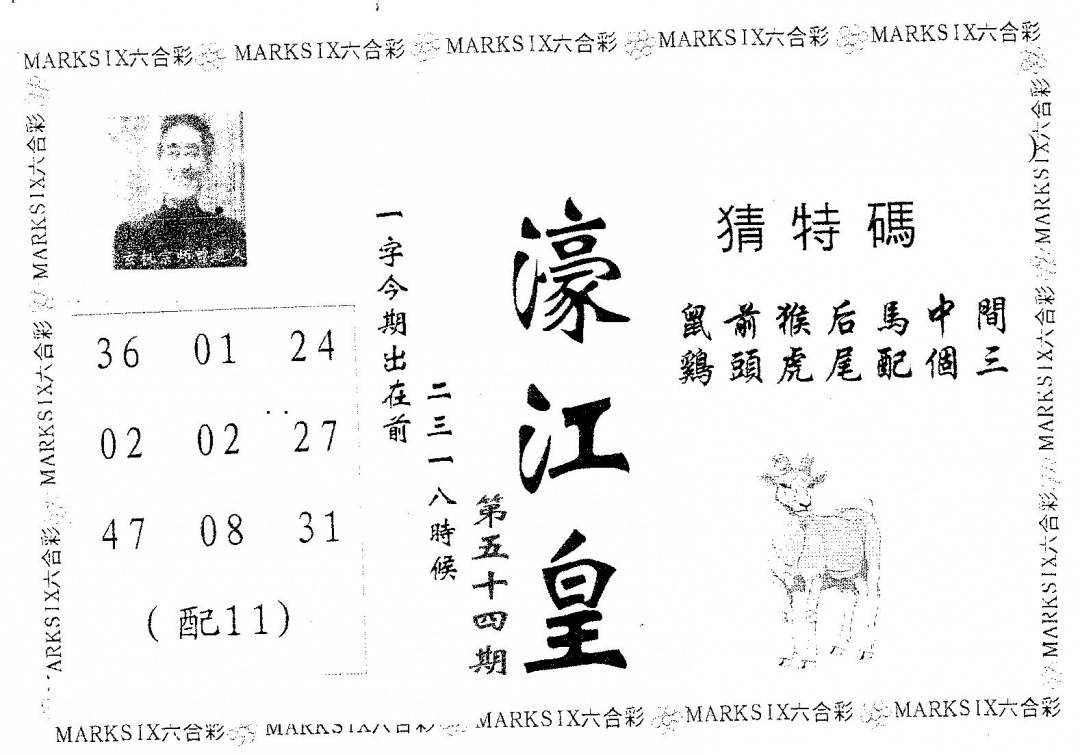 MARKSIX六合彩 MARKSIX六合彩 MARKSIX六合彩 MARKSIX六合彩 MARKSIX六合彩
猜特碼
鼠前猴后馬中間
鷄頭虎尾配個三
濠江皇
第五十四期
一字今期出在前
二三一八時候
36 01 24
02 02 27
47 08 31
(配11)
MARKSIX六合彩 MARKSIX六合彩 MARKSIX六合彩
ARKSIX六合彩 MARKSIX六合彩 MARKSIX六合彩
MARKSIX六合彩 MARKSIX六合彩 MARKSIX六合彩
MARKSIX六合彩 MARKSIX六合彩 MARKSIX六合彩 MARKSIX六合彩